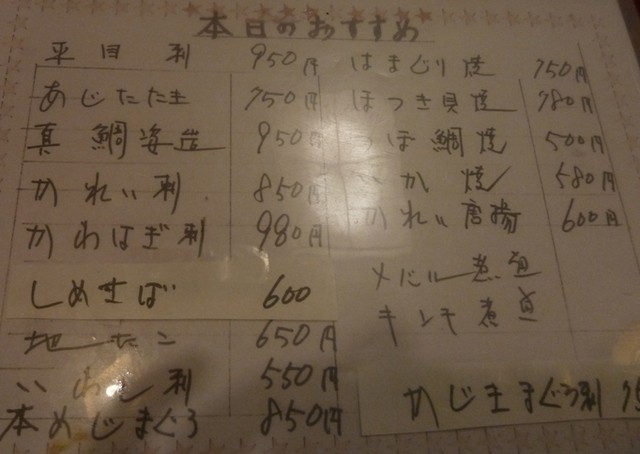 本日のおすすめ
平目刺 950円
あじたたき 750円
真鯛姿造 950円
かれい刺 850円
かわはぎ刺 980円
しめさば 600
地たこ 650円
いわし刺 550円
本めじまぐろ 850円
はまぐり焼 750円
ほっき貝焼 780円
鯛焼 500円
いか焼 580円
かれい唐揚 600円
メバル煮魚
キンキ煮魚
かじきまぐろ刺